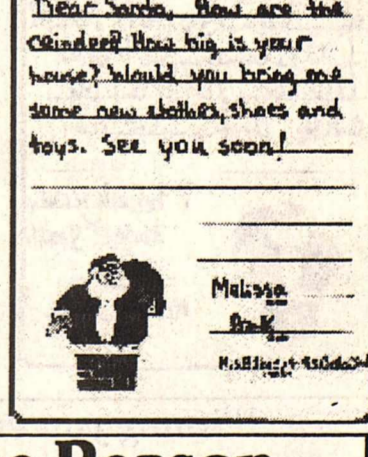 Dear Santa, How are the
reindeer? How big is your
house? Would you bring me
some new clothes, shoes and
toys. See you soon!
Melissa
Pre-K
Reason